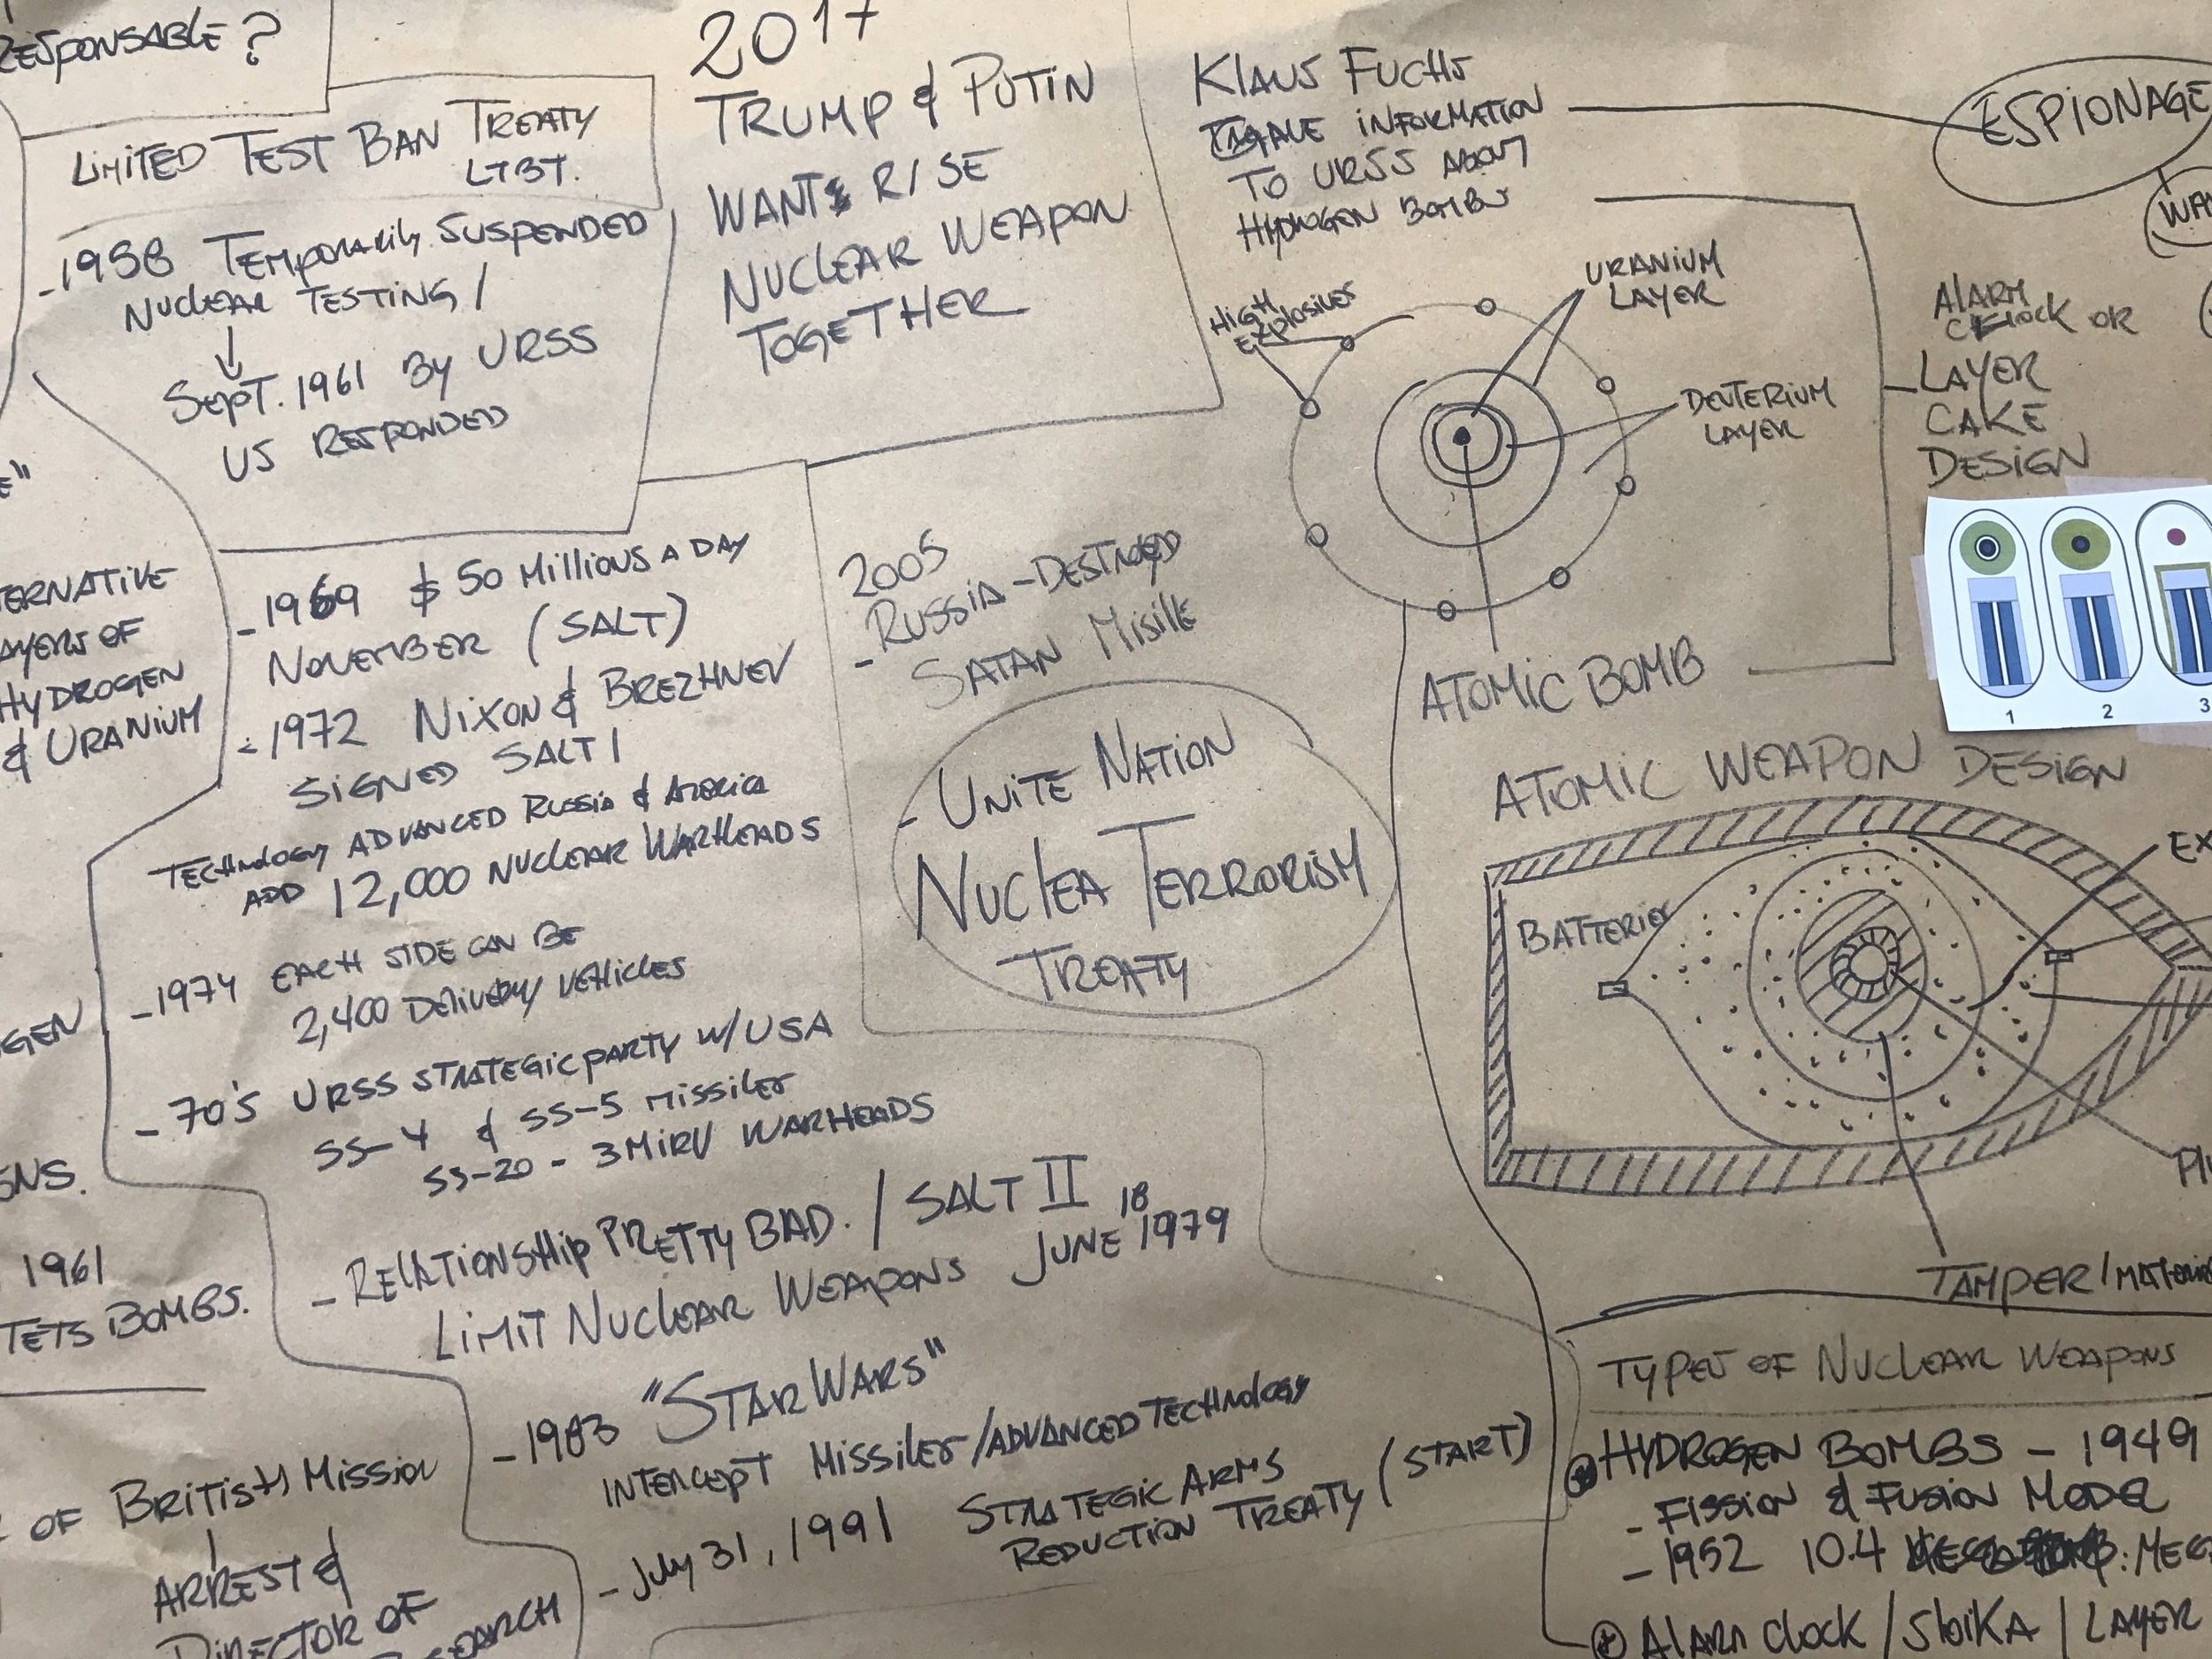 RESPONSABLE?
LIMITED TEST BAN TREATY
LTBT.
-1958 TEMPORARILY SUSPENDED
NUCLEAR TESTING /
SEPT. 1961 BY URSS
US RESPONDED
2017
TRUMP & PUTIN
WANT RISE
NUCLEAR WEAPON
TOGETHER
KLAUS FUCHS
GAVE INFORMATION
TO URSS ABOUT
HYDROGEN BOMBS
ESPIONAGE
HIGH
EXPLOSIVES
URANIUM
LAYER
DEUTERIUM
LAYER
ALARM
CLOCK OR
LAYER
CAKE
DESIGN
ATOMIC BOMB
1
2
3
ERNATIVE
AYERS OF
HYDROGEN
& URANIUM
-1969 $ 50 MILLIONS A DAY
NOVEMBER (SALT)
-1972 NIXON & BREZHNEV
SIGNED SALT I
TECHNOLOGY ADVANCED RUSSIA & AMERICA
ADD 12,000 NUCLEAR WARHEADS
-1974 EACH SIDE CAN BE
2,400 DELIVERY VEHICLES
-70'S URSS STRATEGIC PARTY W/USA
SS-4 & SS-5 MISSILES
SS-20 - 3 MIRV WARHEADS
-RELATIONSHIP PRETTY BAD. / SALT II 18
LIMIT NUCLEAR WEAPONS JUNE 1979
-1983 "STAR WARS"
INTERCEPT MISSILES/ADVANCED TECHNOLOGY
-JULY 31, 1991 STRATEGIC ARMS
REDUCTION TREATY (START)
2005
-RUSSIA-DESTROYED
SATAN MISILE
- UNITE NATION
NUCLEA TERRORISM
TREATY
ATOMIC WEAPON DESIGN
BATTERIES
EX
PLU
TAMPER/MATERI
TYPES OF NUCLEAR WEAPONS
HYDROGEN BOMBS - 1949
- FISSION & FUSION MODEL
- 1952 10.4 MEG
ALARM CLOCK / SLOIKA / LAYER
GEN
ONS.
1961
TETS BOMBS.
OF BRITISH MISSION
ARREST &
DIRECTOR OF
SEARCH